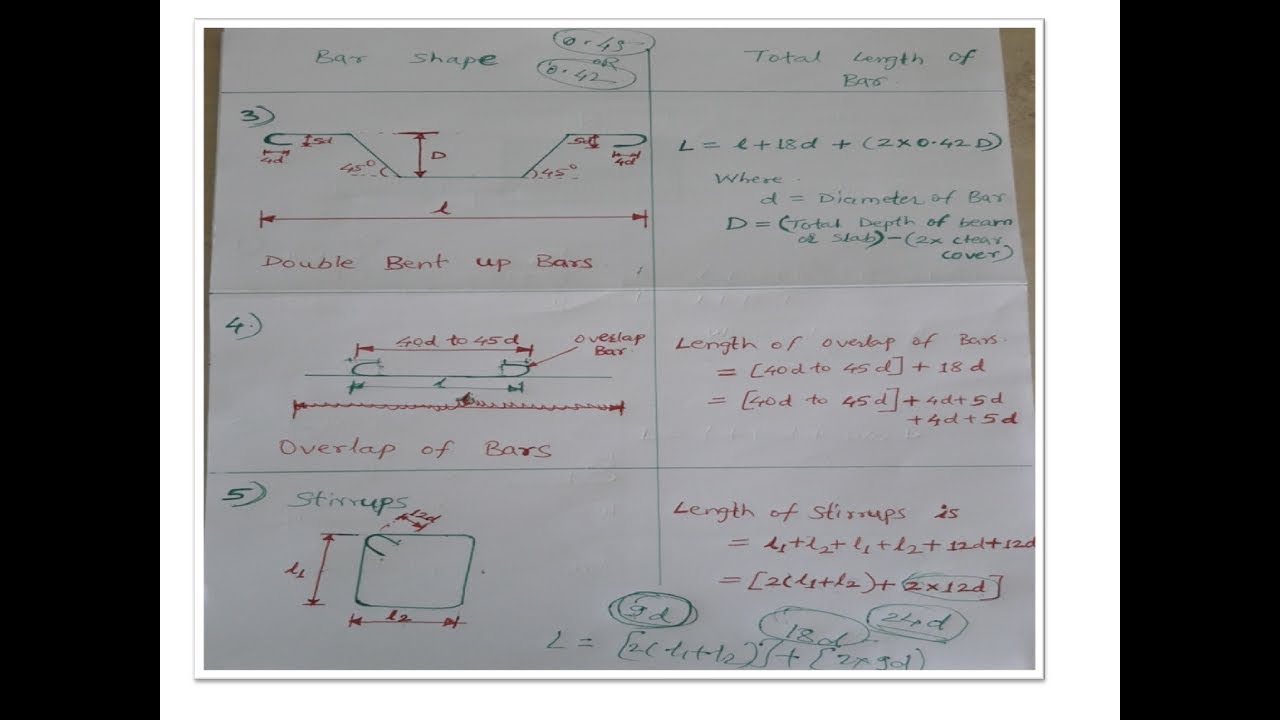 Bar Shape
0.45
OR
0.42
Total Length of
Bar.
3)
5d
4d
45°
D
45°
5d
4d
l
Double Bent up Bars
L = l + 18d + (2×0.42D)
Where.
d = Diameter of Bar
D = (Total Depth of beam
or slab) - (2× clear
cover)
4.)
40d to 45d
overlap
Bar.
l
Overlap of Bars
Length of overlap of Bars.
= [40d to 45d] + 18d
= [40d to 45d] + 4d+5d
+4d+5d
5)
Stirrups
12d
l1
l2
Length of Stirrups is
= l1+l2+l1+l2+12d+12d
= [2(l1+l2)+ 2×12d]
9d
18d
24d
L = [2(l1+l2)] + [2×9d)